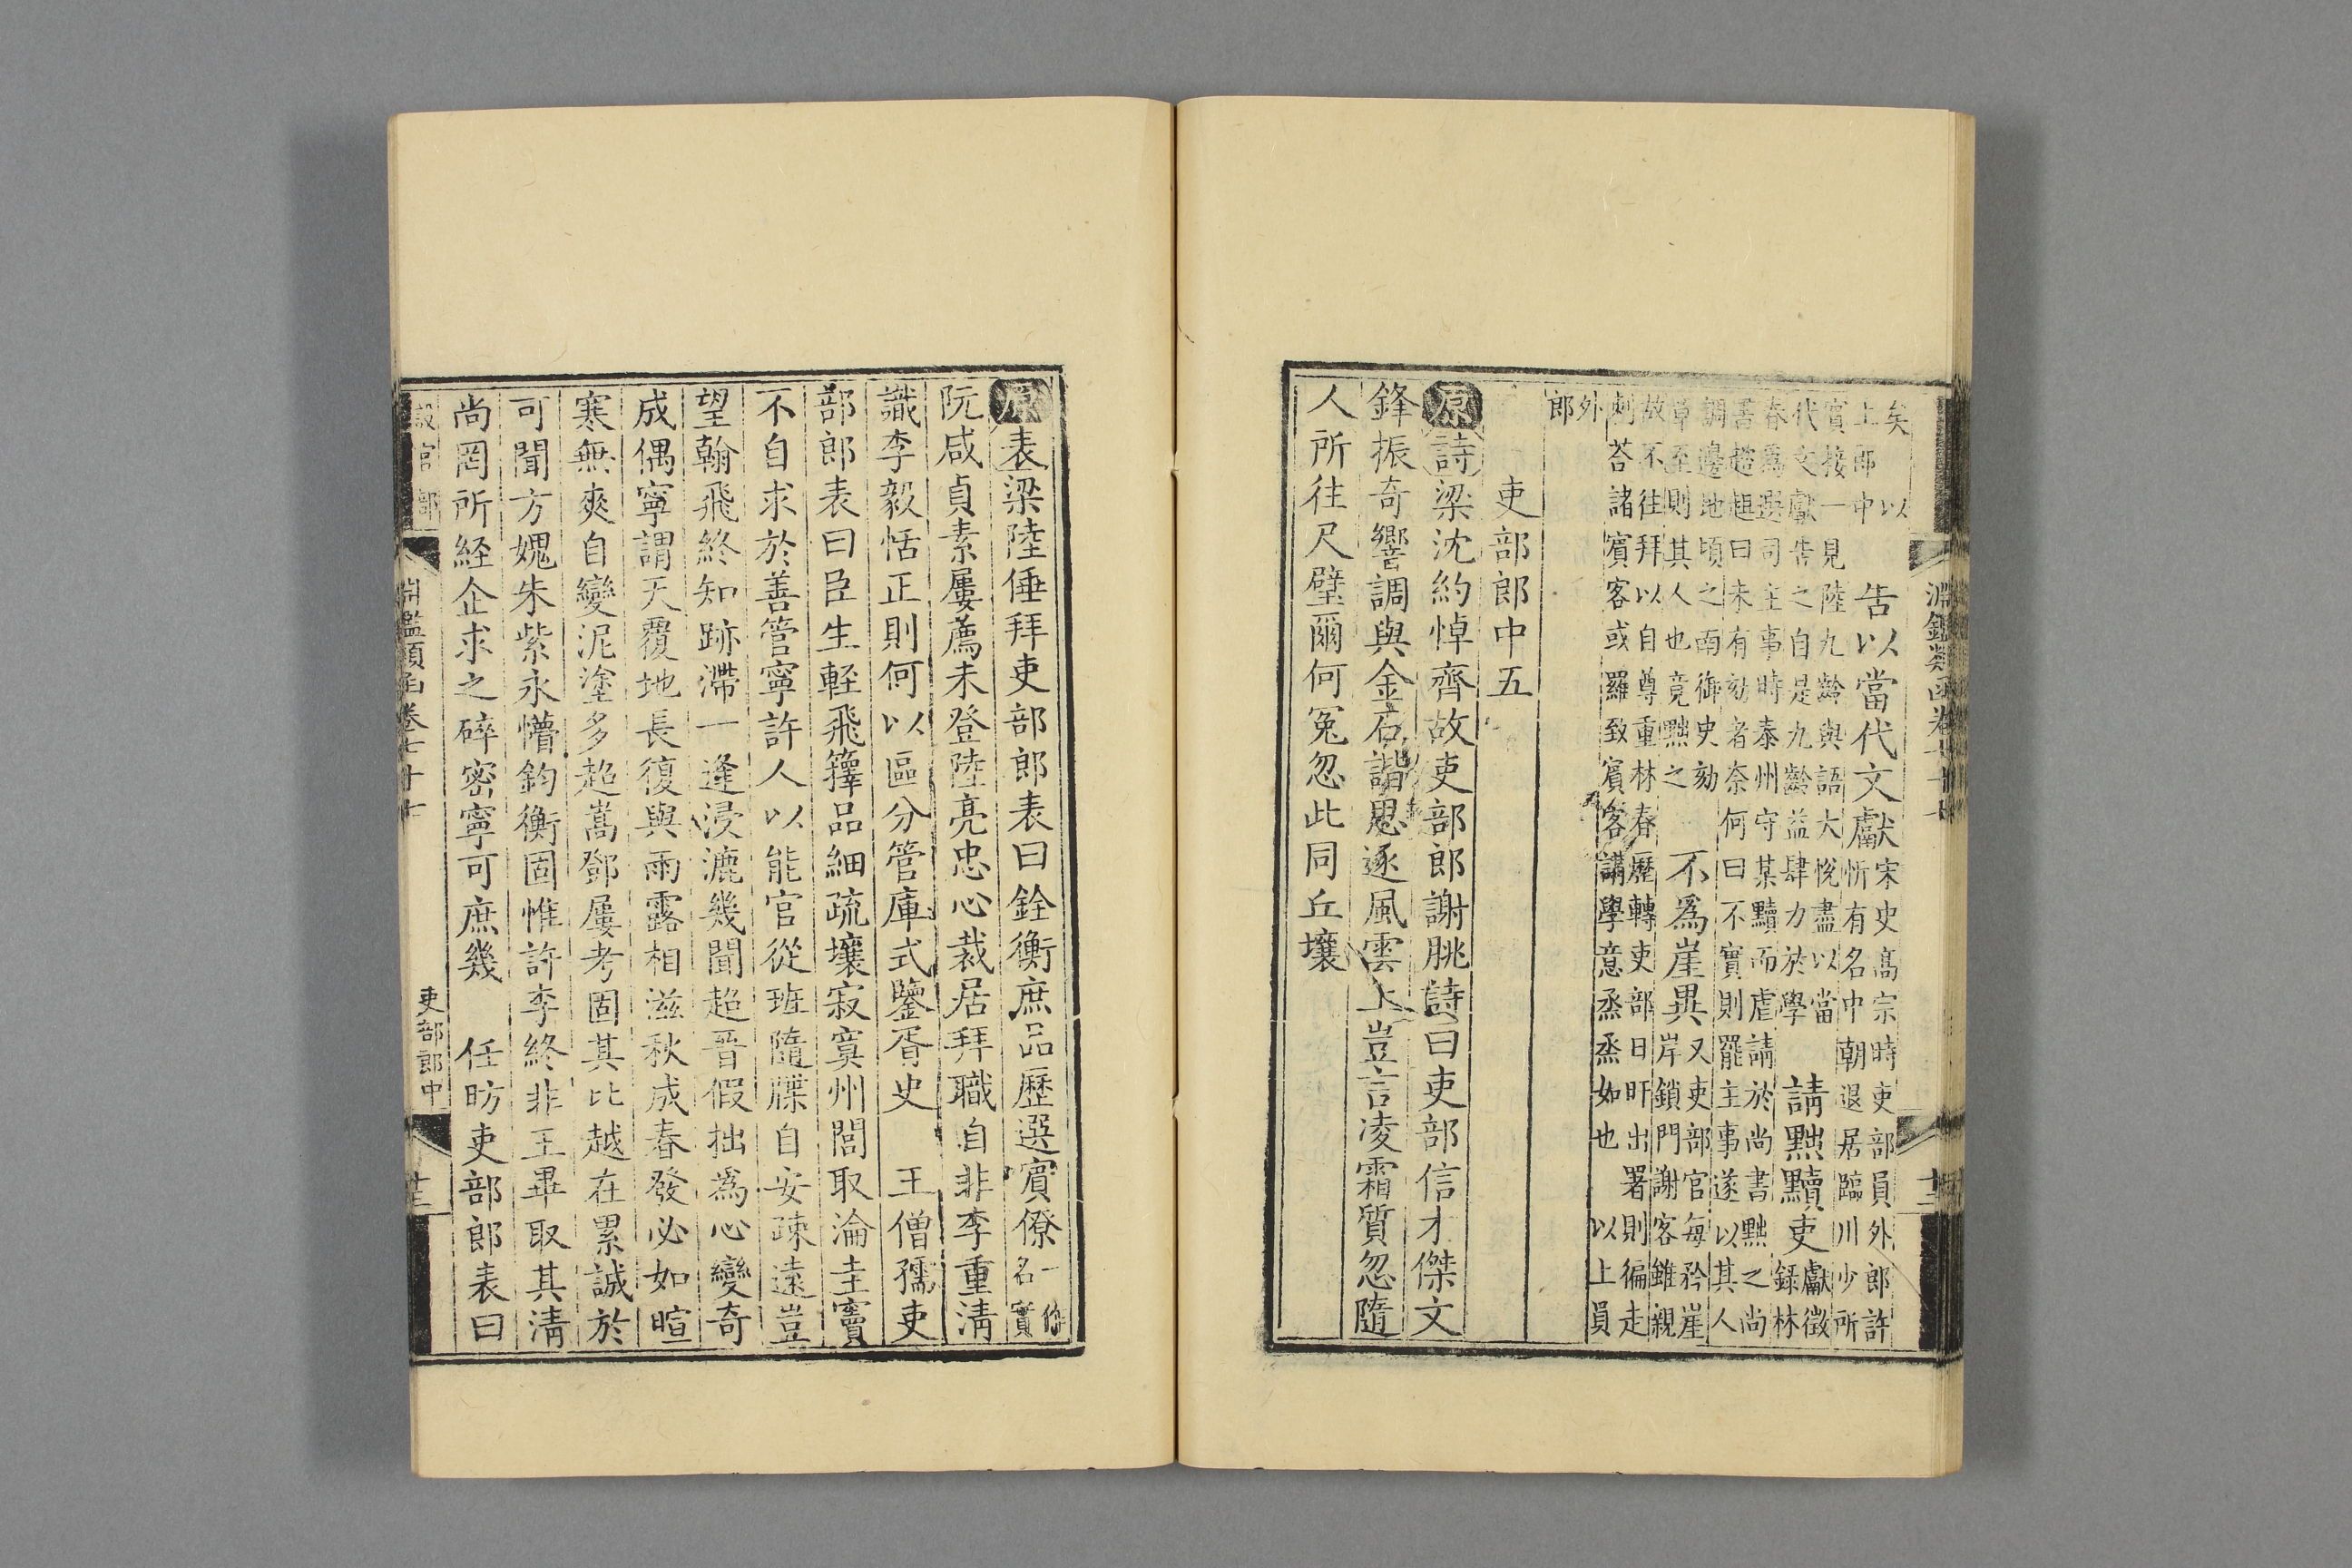 淵鑑類函卷七十七 十二
矣 以
上郎中
告以當代文獻
宋史高宗時吏部員外郎許
忻有名中朝退居臨川少所
賓接一見陸九齡與語大悅盡以當
代文獻告之自是九齡益肆力於學
請黜黷吏
獻徵
錄林
春爲選司主事時泰州守某黷而虐請於尚書黜之尚
書趑趄曰未有劾者奈何曰不實則罷主事遂以其人
調邊地頃之南御史劾
章至則其人也竟黜之
不爲崖異
又吏部官每矜崖
岸鎖門謝客雖親
故不往拜以自尊重林春歷轉吏部日旰出署則徧走
刺荅諸賓客或羅致賓客講學意烝烝如也 以上員
外
郎
吏部郎中五
原詩梁沈約悼齊故吏部郎謝朓詩曰吏部信才傑文
鋒振奇響調與金石諧思逐風雲上豈言凌霜質忽隨
人所往尺璧爾何冤忽此同丘壤
原表梁陸倕拜吏部郎表曰銓衡庶品歷選賓僚一作名實
阮咸貞素屢薦未登陸亮忠心裁居拜職自非李重清
識李毅恬正則何以區分管庫式鑒胥史 王僧孺吏
部郎表曰臣生輕飛籜品細疏壤寂寞州閭取淪圭竇
不自求於善管寧許人以能官從班隨牒自安疎遠豈
望翰飛終知跡滯一逢浸漉幾聞超晉假拙爲心變奇
成偶寧謂天覆地長復與雨露相滋秋成春發必如暄
寒無爽自變泥塗多超嵩鄧屢考固其比越在累誠於
可聞方媿朱紫永懵鈞衡固惟許李終非王畢取其清
尚罔所経企求之碎密寧可庶幾 任昉吏部郎表曰
設官部 淵鑑類函卷七十七 吏部郎中 十三